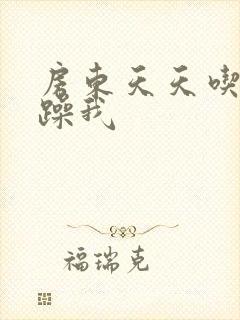 房东天天喫
躁我
福瑞克